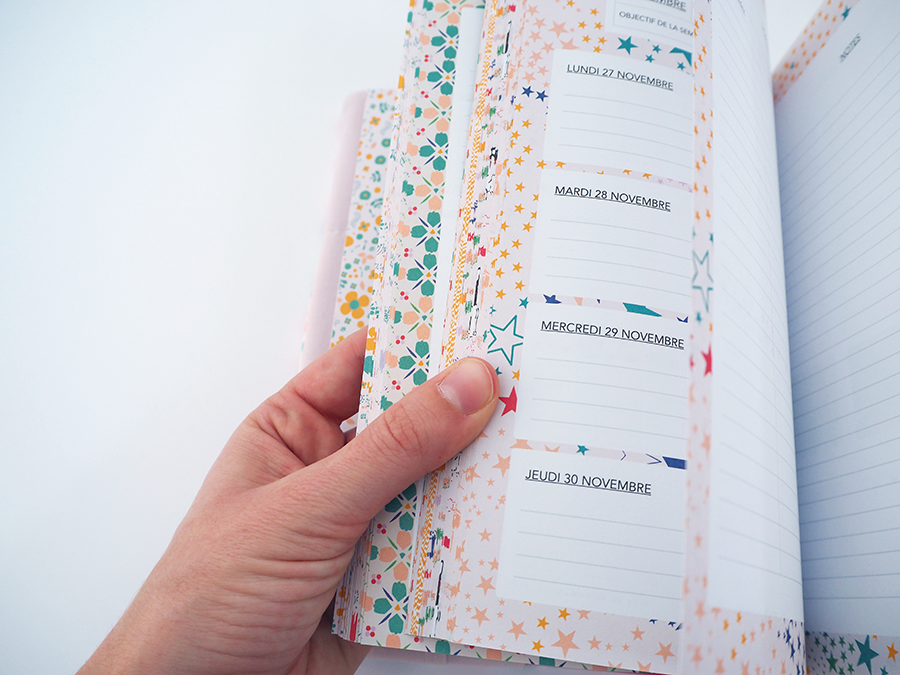 NOVEMBRE
OBJECTIF DE LA SEM
LUNDI 27 NOVEMBRE
MARDI 28 NOVEMBRE
MERCREDI 29 NOVEMBRE
JEUDI 30 NOVEMBRE
NOTES